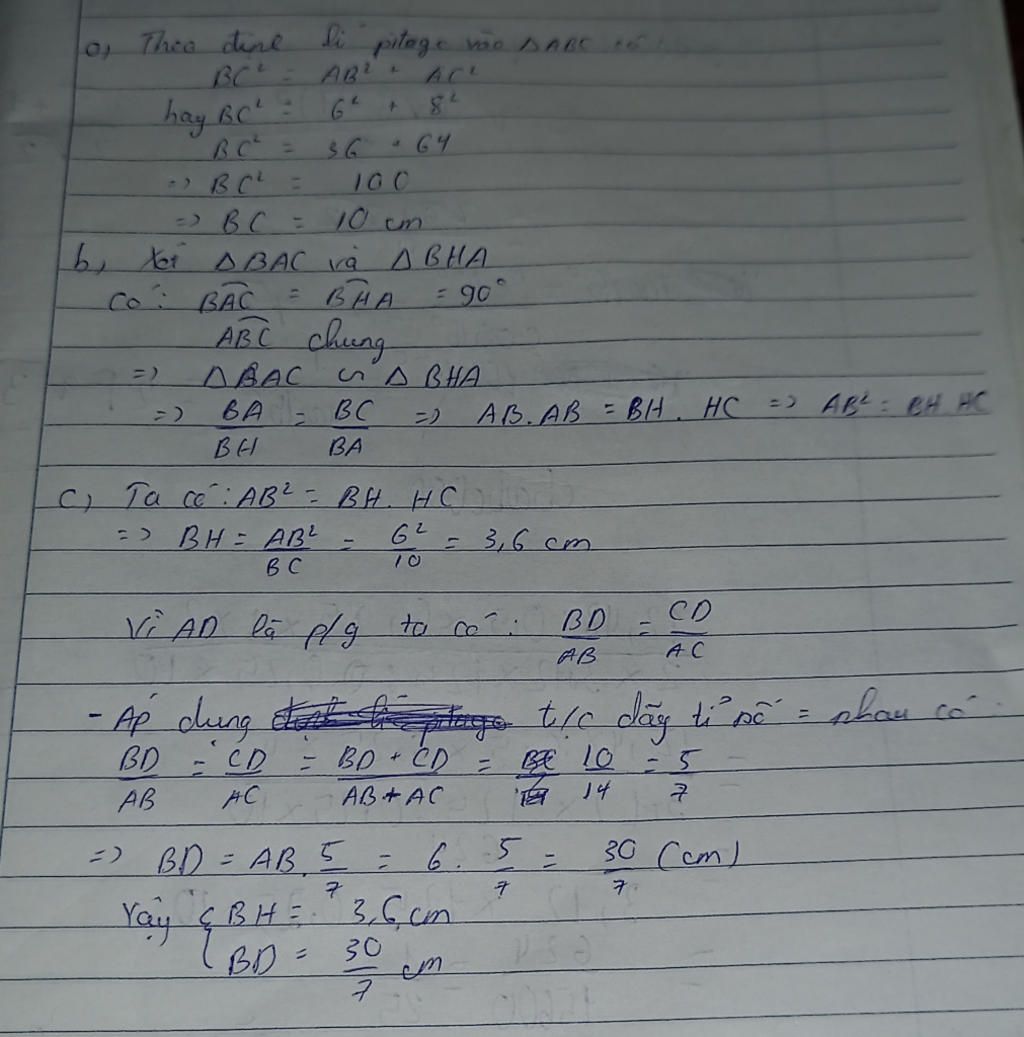 a, Theo định lí pitago vào ΔABC có:
BC² = AB² + AC²
hay BC² = 6² + 8²
BC² = 36 + 64
=> BC² = 100
=> BC = 10 cm
b, Xét ΔBAC và ΔBHA
Có: BAC = BHA = 90°
ABC chung
=> ΔBAC ∽ ΔBHA
=> BA/BH = BC/BA => AB.AB = BH.HC => AB² = BH.HC
c, Ta có: AB² = BH.HC
=> BH = AB²/BC = 6²/10 = 3,6 cm
Vì AD là p/g ta có: BD/AB = CD/AC
- Áp dụng t/c dãy tỉ số = nhau có
BD/AB = CD/AC = BD + CD/AB + AC = 10/14 = 5/7
=> BD = AB.5/7 = 6.5/7 = 30/7 (cm)
Vậy { BH = 3,6 cm
BD = 30/7 cm